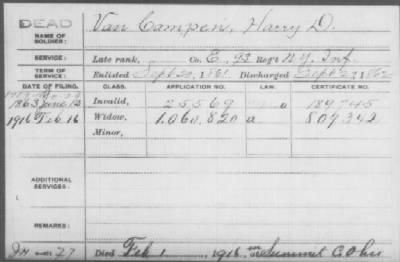 DEAD
NAME OF SOLDIER: Van Campen, Harry D.
SERVICE: Late rank, Co. E, 93 Reg't N.Y. Inf.
TERM OF SERVICE: Enlisted Sept 20, 1861 Discharged Sept 27, 1862
DATE OF FILING. CLASS. APPLICATION NO. LAW. CERTIFICATE NO.
1863 June 12 Invalid, 25,569 189,745
1916 Feb. 16 Widow, 1,060,820 a 809,342
Minor,
ADDITIONAL SERVICES:
REMARKS:
Died Feb 1, 1916, Summit C. Ohio